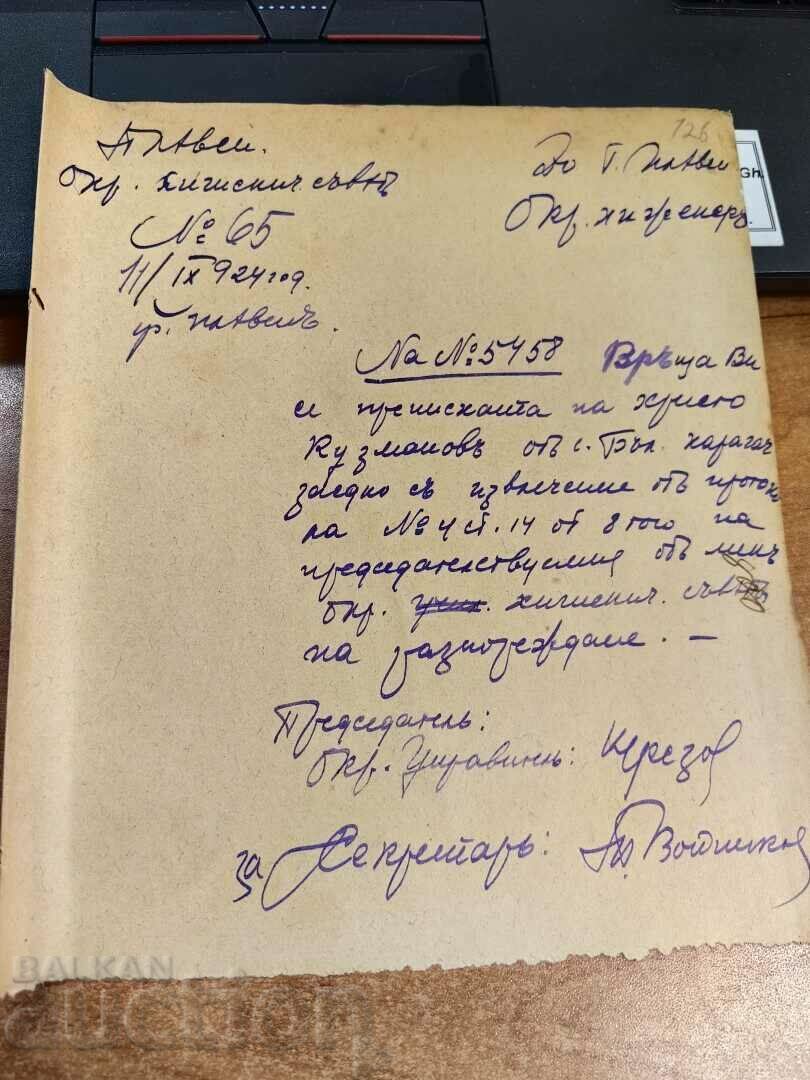 126
Плевен.
Окр. Хигиенич. съветъ
№ 65
11/IX 924 год.
гр. Плевенъ.
До Г. Плевен
Окр. инженеръ.
На № 5458 Връща Ви
се преписката на Христо
Кузмановъ отъ с. Бъл. Карагач
заедно съ извлечение отъ протоко
ла № 4 ст. 14 от 8 того на
председателствуемия отъ менъ
окр. хигиенич. съветъ
на разпореждане. —
Председатель:
Окр. Управитель:
за Секретарь:
BALKAN
auction
Gh.